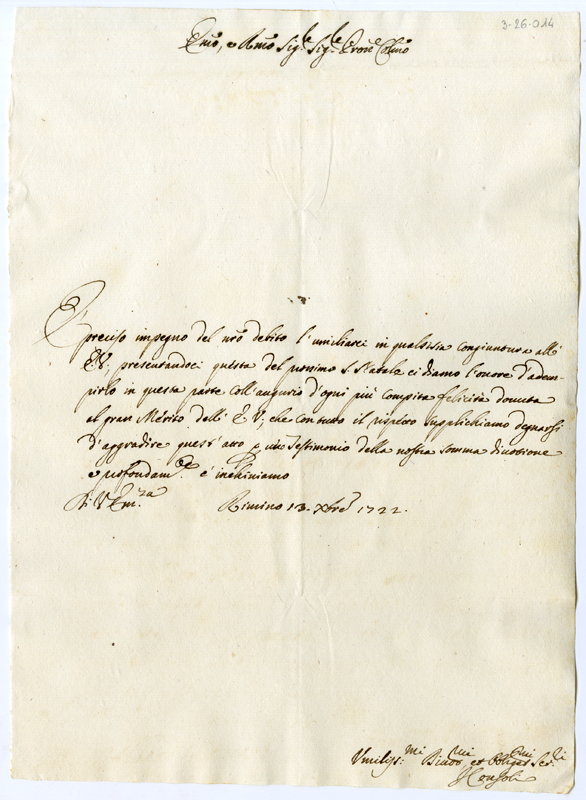 3-26-014
Emo, e Rmo Sig.re Sig.re Prone Colmo
È preciso impegno del nrõ debito l'umiliarci in qualsisia congiuntura all'
E. V.; presentandoci questa del prossimo S. Natale ci diamo l'onore d'adem-
pirlo in questa parte coll'augurio d'ogni più compita felicità dovuta
al gran Mérito dell'E V; che con tutto il rispetto supplichiamo degnarsi
d'aggradire quest'atto p un Testimonio della nostra somma divozione
e profondam.te c'inchiniamo
Di V Em.za Rimino 13. Xbre 1722.
Umiliss.mi Divot.mi et Obligat.mi Ser.ri
I Consoli